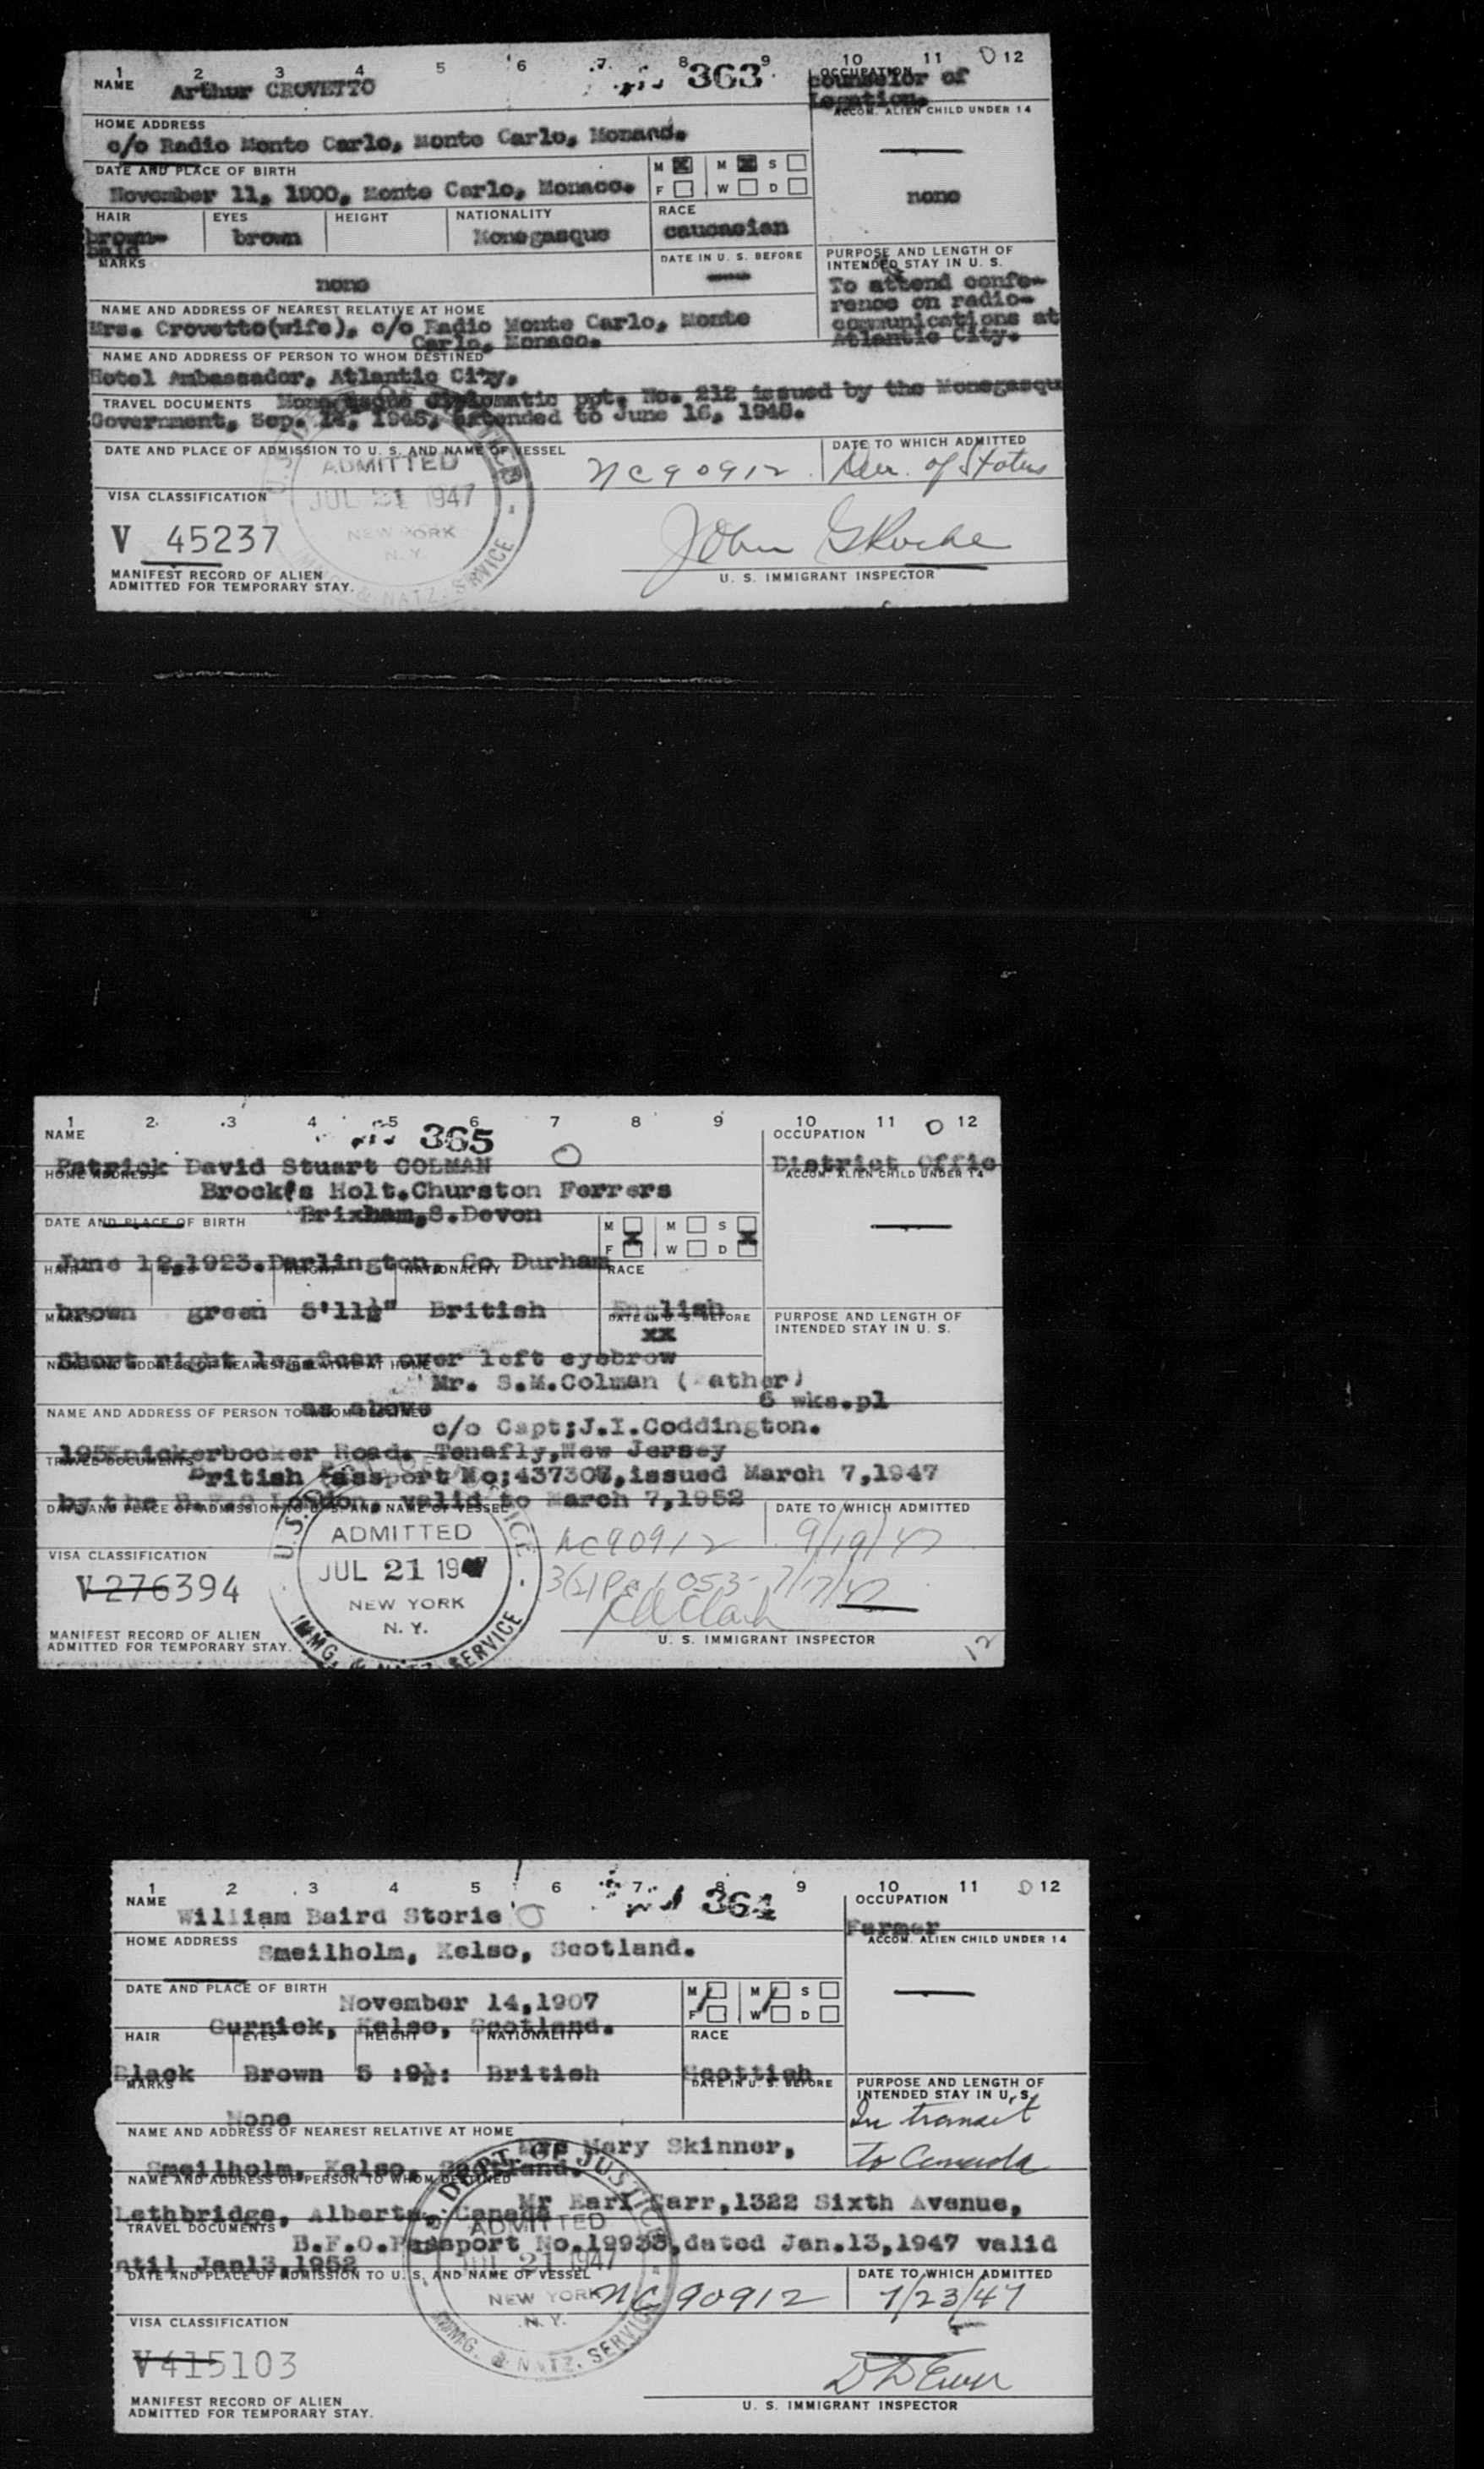 1 2 3 4 5 6 7 8 9 10 11 12
NAME Arthur CROVETTO 363 OCCUPATION counselor of
Legation.
ACCOM. ALIEN CHILD UNDER 14
HOME ADDRESS
c/o Radio Monte Carlo, Monte Carlo, Monaco.
DATE AND PLACE OF BIRTH M M S
November 11, 1900, Monte Carlo, Monaco. F W D none
HAIR EYES HEIGHT NATIONALITY RACE
brown- brown Monegasque caucasian
bald
MARKS DATE IN U. S. BEFORE PURPOSE AND LENGTH OF
INTENDED STAY IN U. S.
none To attend confe-
rence on radio-
communications at
Atlantic City.
NAME AND ADDRESS OF NEAREST RELATIVE AT HOME
Mrs. Crovetto(wife), c/o Radio Monte Carlo, Monte
Carlo, Monaco.
NAME AND ADDRESS OF PERSON TO WHOM DESTINED
Hotel Ambassador, Atlantic City.
TRAVEL DOCUMENTS Monegasque diplomatic ppt. No. 212 issued by the Monegasqu
Government, Sep. 14, 1945, extended to June 16, 1948.
DATE AND PLACE OF ADMISSION TO U. S. AND NAME OF VESSEL DATE TO WHICH ADMITTED
NC90912 Dur. of Status
ADMITTED
JUL 21 1947
NEW YORK
N. Y.
VISA CLASSIFICATION
V 45237
John G Roche
MANIFEST RECORD OF ALIEN
ADMITTED FOR TEMPORARY STAY.
U. S. IMMIGRANT INSPECTOR
& NATZ. SERVICE
1 2 3 4 5 6 7 8 9 10 11 12
NAME 365 OCCUPATION
Patrick David Stuart COLMAN District Offic
HOME ADDRESS ACCOM. ALIEN CHILD UNDER 14
Brock's Holt.Churston Ferrers
Brixham,S.Devon
DATE AND PLACE OF BIRTH M M S
F W D
June 12,1923.Darlington, Co Durham
HAIR EYES HEIGHT NATIONALITY RACE
brown green 5'11½" British English
MARKS DATE IN U. S. BEFORE PURPOSE AND LENGTH OF
INTENDED STAY IN U. S.
xx
Short right leg.Scar over left eyebrow
NAME AND ADDRESS OF NEAREST RELATIVE AT HOME
Mr. S.M.Colman ( ather)
as above 6 wks.pl
NAME AND ADDRESS OF PERSON TO WHOM DESTINED
c/o Capt;J.I.Coddington.
195Knickerbocker Road. Tenafly,New Jersey
TRAVEL DOCUMENTS
British Passport No;437307,issued March 7,1947
by the London, valid to March 7,1952
DATE AND PLACE OF ADMISSION TO U. S. AND NAME OF VESSEL DATE TO WHICH ADMITTED
NC90912 9/19/47
ADMITTED
JUL 21 1947
NEW YORK
N. Y.
IMMG. & NATZ. SERVICE
VISA CLASSIFICATION
V276394
7/17/47
MANIFEST RECORD OF ALIEN
ADMITTED FOR TEMPORARY STAY.
U. S. IMMIGRANT INSPECTOR
12
1 2 3 4 5 6 7 8 9 10 11 12
NAME 364 OCCUPATION
William Baird Storie Farmer
ACCOM. ALIEN CHILD UNDER 14
HOME ADDRESS Smeilholm, Kelso, Scotland.
DATE AND PLACE OF BIRTH M M S
November 14,1907 F W D
Curnick, Kelso, Scotland.
HAIR EYES HEIGHT NATIONALITY RACE
Black Brown 5 :9½: British Scottish
MARKS DATE IN U. S. BEFORE PURPOSE AND LENGTH OF
INTENDED STAY IN U. S.
None In transit
to Canada
NAME AND ADDRESS OF NEAREST RELATIVE AT HOME
Mrs Mary Skinner,
Smeilholm, Kelso, Scotland.
NAME AND ADDRESS OF PERSON TO WHOM DESTINED
Mr Earl Carr,1322 Sixth Avenue,
Lethbridge, Alberta, Canada
TRAVEL DOCUMENTS
B.F.O.Passport No.19933,dated Jan.13,1947 valid
ntil Jan13,1952
DATE AND PLACE OF ADMISSION TO U. S. AND NAME OF VESSEL DATE TO WHICH ADMITTED
NC90912 7/23/47
DEPT. OF JUSTICE
ADMITTED
JUL 21 1947
NEW YORK
N. Y.
IMMG. & NATZ. SERVICE
VISA CLASSIFICATION
V415103
MANIFEST RECORD OF ALIEN
ADMITTED FOR TEMPORARY STAY.
U. S. IMMIGRANT INSPECTOR